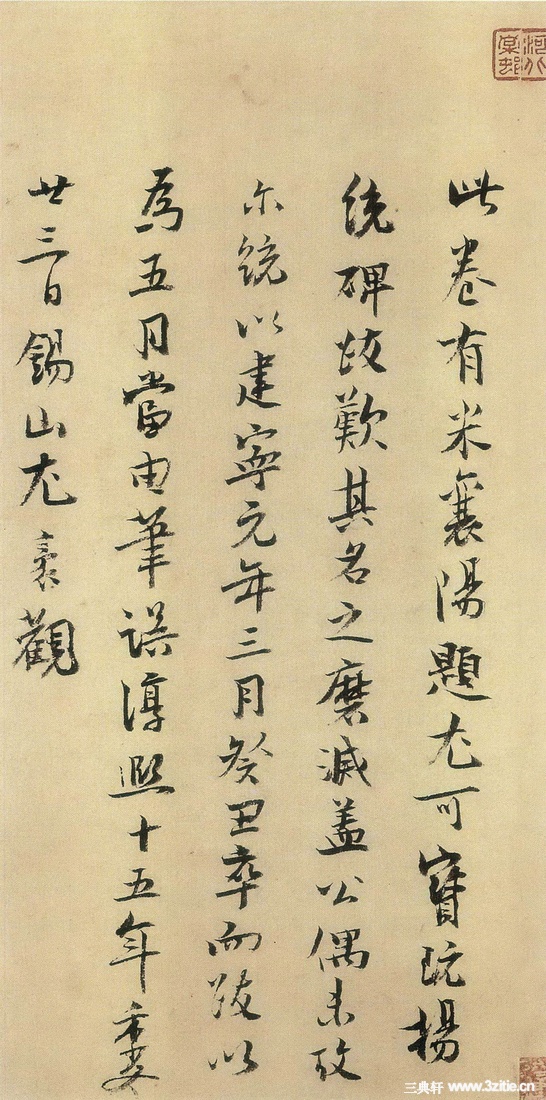 此卷有米襄陽題尤可寶玩揚
統碑跋歎其名之磨滅蓋公偶未攷
尓統以建寧元年三月癸丑卒而跋以
為五月當由筆誤淳熙十五年季夏
廿三日錫山尤袤觀
河北棠邨
三典轩 www.3zitie.cn